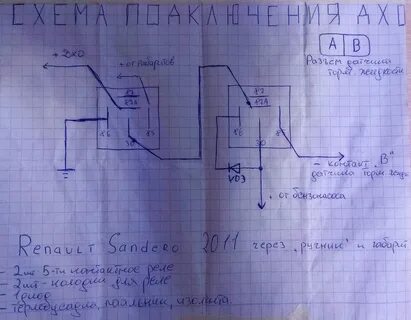 СХЕМА ПОДКЛЮЧЕНИЯ ДХО
A B
Разъем датчика
торм. жидкости
+ ДХО
+ от габаритов
87
87A
86
85
30
87
87A
86
85
30
VD3
- контакт "В"
датчика торм. жидк.
+ от бензонасоса
Renault Sandero 2011 через "ручник" и габарит
- 2шт 5-ти контактное реле
- 2шт - колодки для реле
- 1диод
- термоусадка, паяльник, изолента.